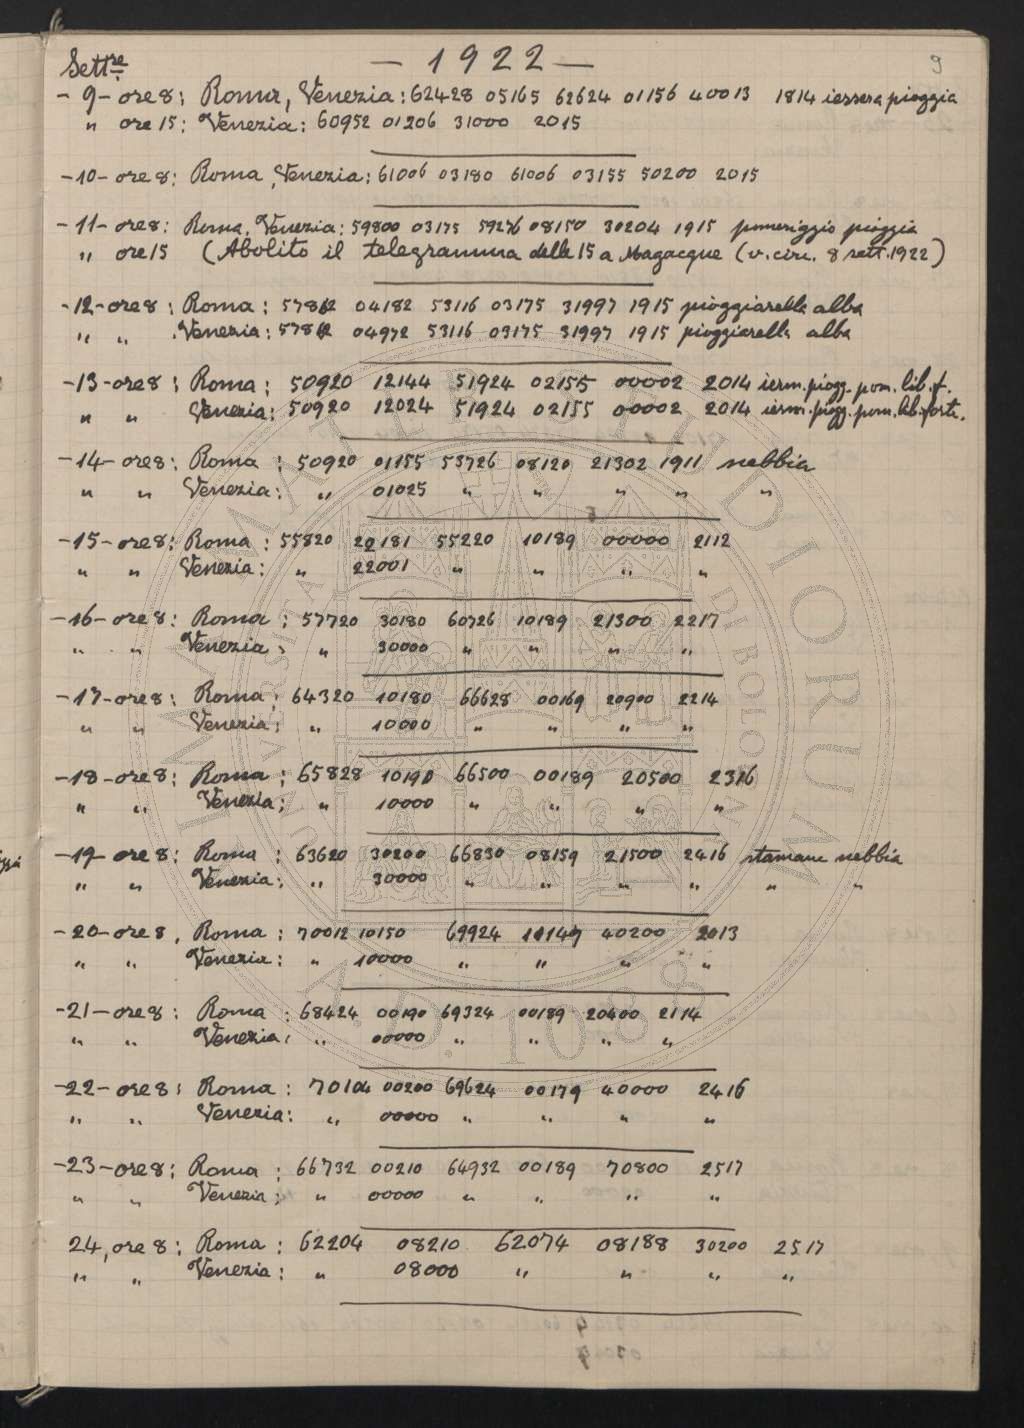 Settre. — 1922 — 9
- 9 - ore 8: Roma, Venezia: 62428 05165 62624 01156 40013 1814 iersera pioggia
" ore 15: Venezia: 60952 01206 31000 2015
- 10 - ore 8: Roma, Venezia: 61006 03180 61006 03155 50200 2015
- 11 - ore 8: Roma, Venezia: 59800 03175 59276 08150 30204 1915 pomeriggio pioggia
" ore 15 (Abolito il telegramma delle 15 a Magacque (v. circ. 8 sett. 1922)
- 12 - ore 8: Roma: 57812 04182 53116 03175 31997 1915 pioggiarella alba
" " Venezia: 57812 04972 53116 03175 31997 1915 pioggiarella alba
- 13 - ore 8: Roma: 50920 12144 51924 02155 00002 2014 ierm. piogg. pom. lib. f.
" " Venezia: 50920 12024 51924 02155 00002 2014 ierm. piogg. pom. lib. forte.
- 14 - ore 8: Roma: 50920 01155 53726 08120 21302 1911 nebbia
" " Venezia: " 01025 " " " " "
- 15 - ore 8: Roma: 55820 22181 55220 10189 00000 2112
" " Venezia: " 22001 " " " "
- 16 - ore 8: Roma: 57720 30180 60726 10189 21300 2217
" " Venezia: " 30000 " " " "
- 17 - ore 8: Roma: 64320 10180 66628 00169 20900 2214
" " Venezia: " 10000 " " " "
- 18 - ore 8: Roma: 65828 10190 66500 00189 20500 2316
" " Venezia: " 10000 " " " "
- 19 - ore 8: Roma: 63620 30200 66830 08159 21500 2416 stamane nebbia
" " Venezia: " 30000 " " " " " "
- 20 - ore 8, Roma: 70012 10150 69924 10149 40200 2013
" " Venezia: " 10000 " " " "
- 21 - ore 8: Roma: 68424 00190 69324 00189 20400 2114
" " Venezia: " 00000 " " " "
- 22 - ore 8: Roma: 70104 00200 69624 00179 40000 2416
" " Venezia: " 00000 " " " "
- 23 - ore 8: Roma: 66732 00210 64932 00189 70800 2517
" " Venezia: " 00000 " " " "
24, ore 8: Roma: 62204 08210 62074 08188 30200 2517
" " Venezia: " 08000 " " " "